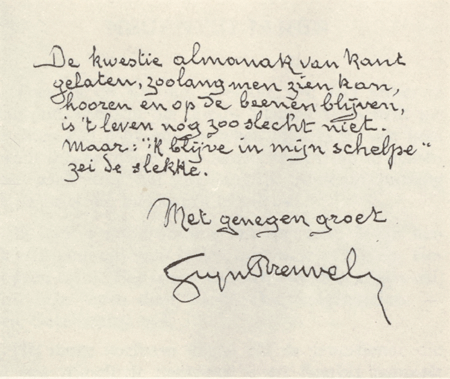 De kwestie almanak van kant
gelaten, zoolang men zien kan,
hooren en op de beenen blijven,
is 't leven nog zoo slecht niet.
Maar: "'k blijve in mijn schelpe"
zei de slekke.
Met genegen groet
Stijn Streuvels